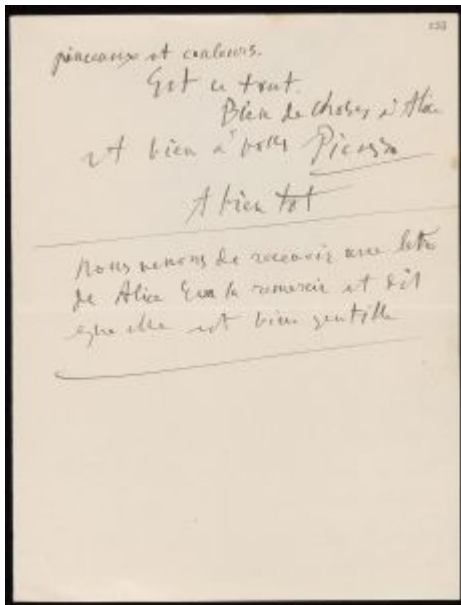 pinceaux et couleurs.
Est ce tout.
Bien de choses a Alice
et bien a vous Picasso
A bien tot
Nous venons de recevoir une letre
de Alice Eva la remercie et dit
que elle est bien gentille